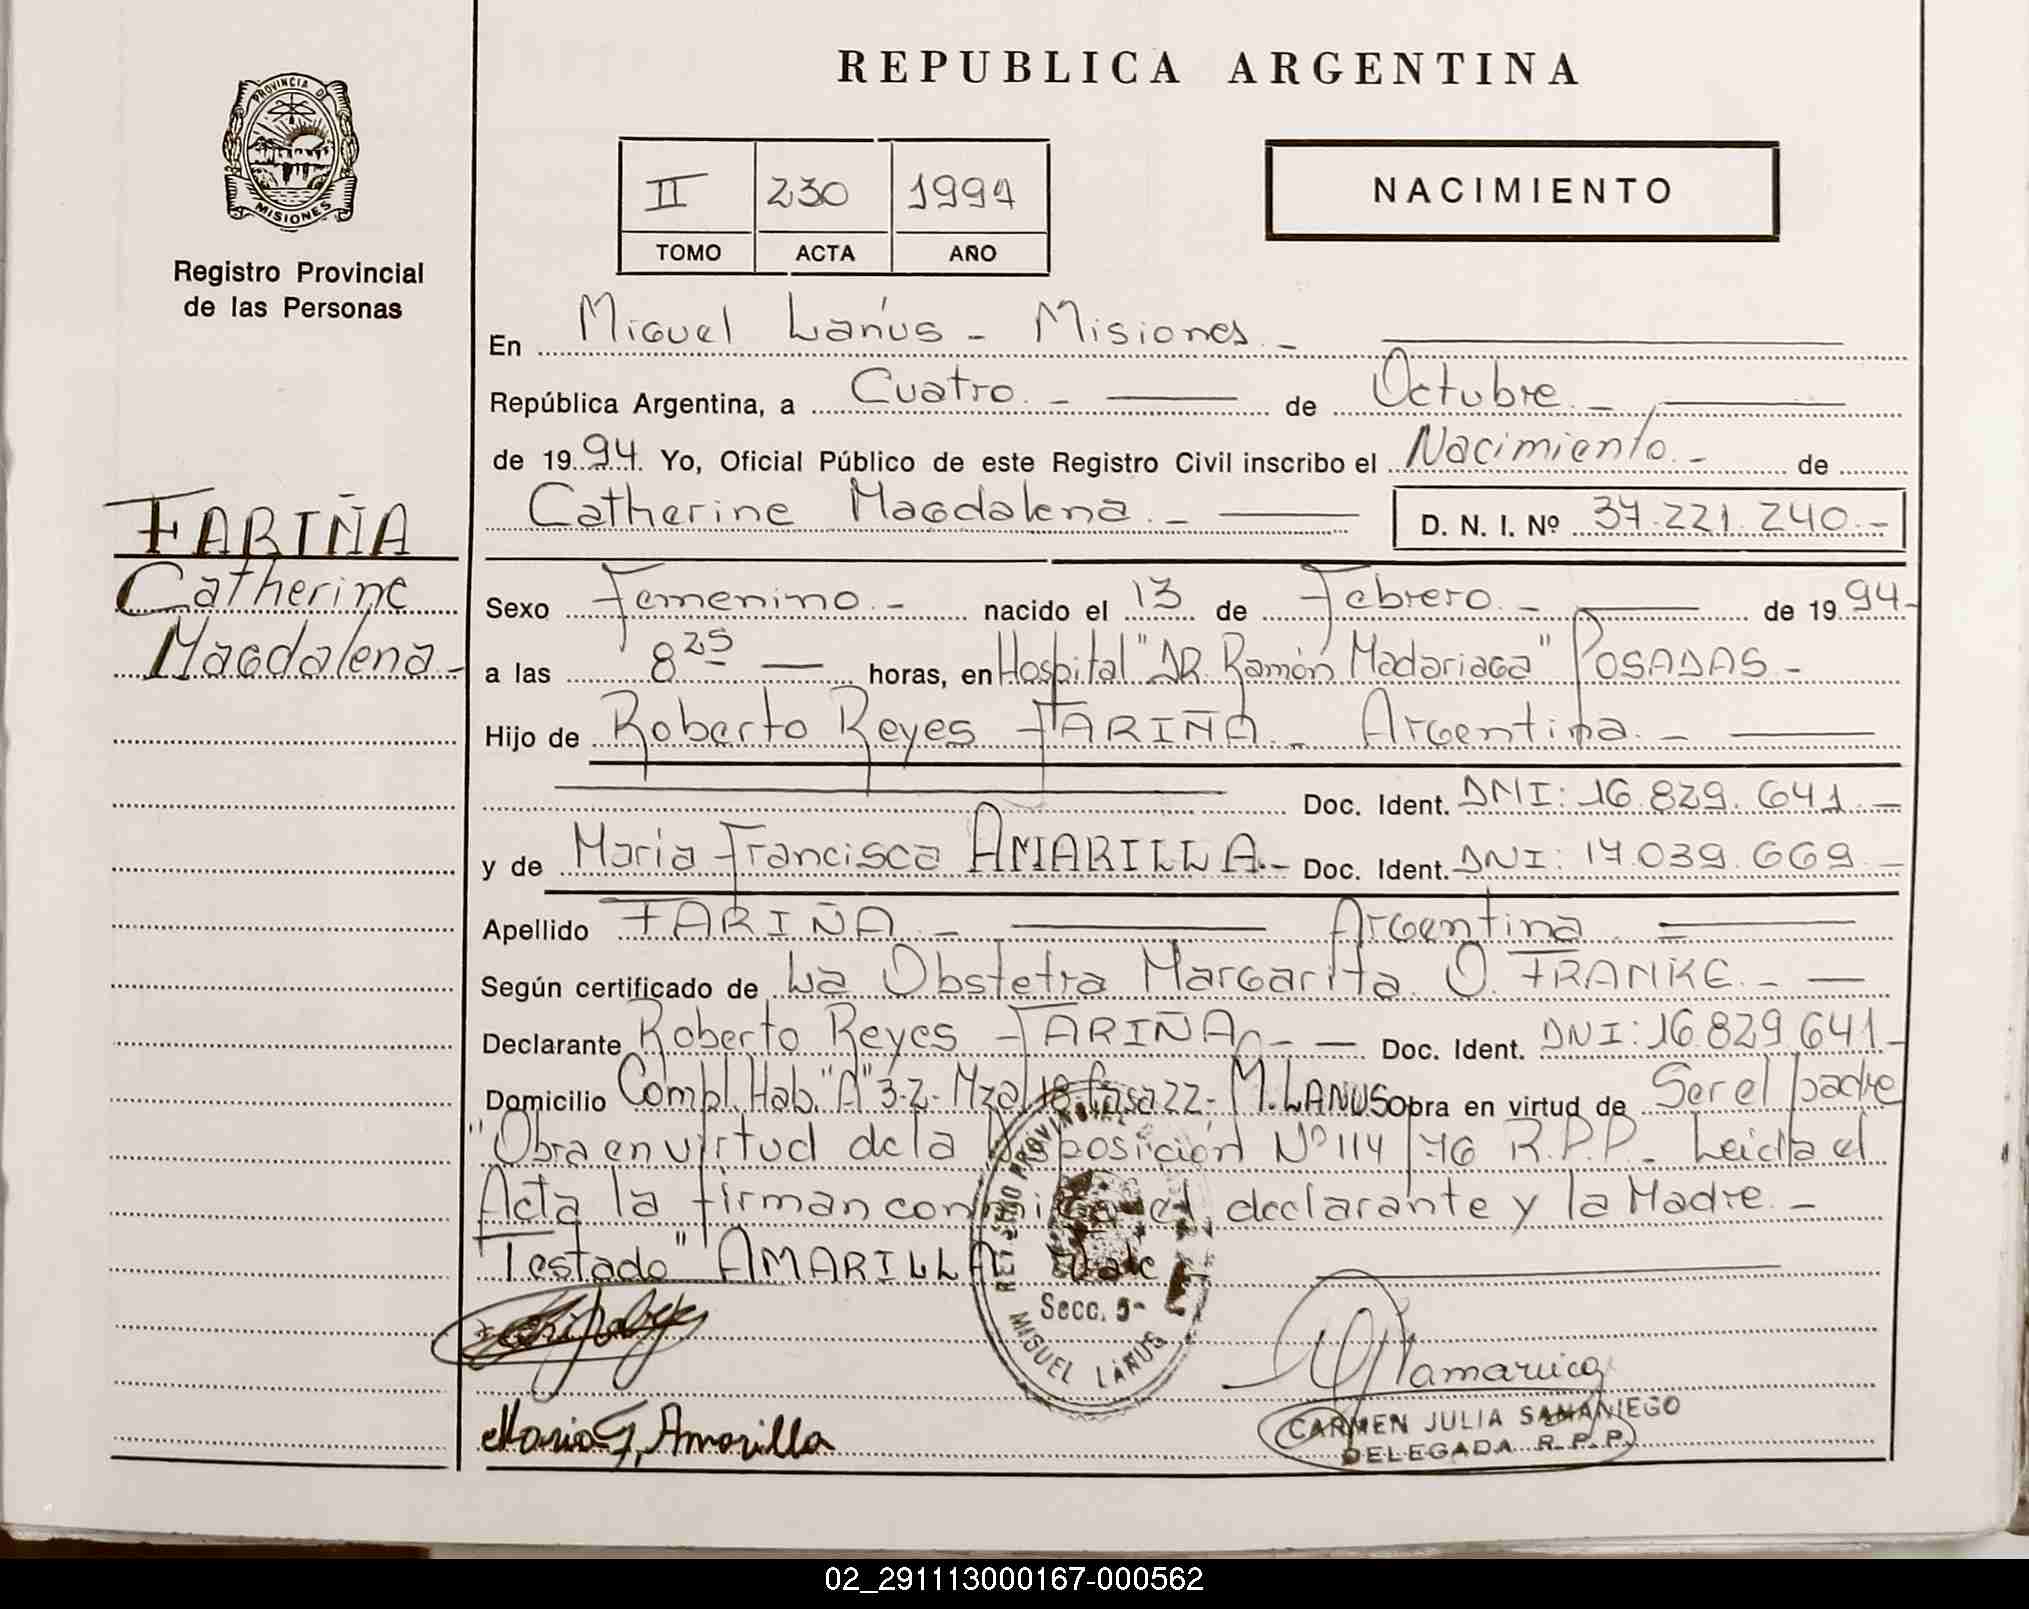 REPUBLICA ARGENTINA
PROVINCIA DE
MISIONES
Registro Provincial
de las Personas
II 230 1994
TOMO ACTA AÑO
NACIMIENTO
En Miguel Lanús - Misiones. -
República Argentina, a Cuatro. - de Octubre. -
de 1994. Yo, Oficial Público de este Registro Civil inscribo el Nacimiento. - de
Catherine Magdalena. - D. N. I. Nº 37.221.240.-
FARIÑA
Catherine
Magdalena.-
Sexo Femenino. - nacido el 13 de Febrero. - de 1994-
a las 8 25 — horas, en Hospital "DR. Ramón Madariaga" POSADAS -
Hijo de Roberto Reyes FARIÑA. - Argentina. -
Doc. Ident. DNI: 16.829.641. -
y de Maria Francisca AMARILLA.- Doc. Ident. DNI: 17.039.669. -
Apellido FARIÑA. - Argentina
Según certificado de La Obstetra Margarita O. FRANKE. - —
Declarante Roberto Reyes FARIÑA. - — Doc. Ident. DNI: 16.829.641 -
Domicilio Compl. Hab. "A" 3-2- Mza 18 Casa 22- M. LANUS Obra en virtud de Ser el padre
"Obra en virtud de la Disposición Nº 114/76 R.P.P. - Leida el
Acta la firman conmigo el declarante y la Madre. -
"Testado" AMARILLA Vale
REGISTRO PROVINCIAL
Secc. 5-
MIGUEL LANUS
Maria F. Amarilla
CARMEN JULIA SAMANIEGO
DELEGADA R. P. P.
02_291113000167-000562